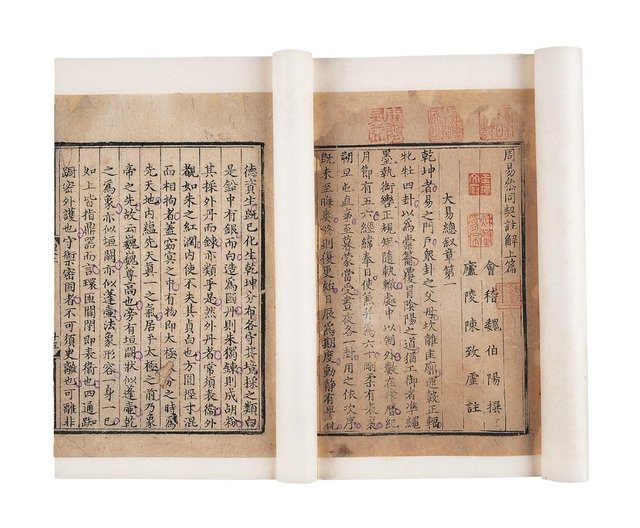 周易叅同契註解上篇
會稽魏伯陽撰
廬陵陳致虛註
大易總叙章第一
乾坤者易之門戶衆卦之父母坎離匡廓運轂正軸
牝牡四卦以為橐籥覆冐陰陽之道猶工御者準繩
墨執銜轡正規矩隨軌轍處中以制外數在律曆紀
月節有五六經緯奉日使兼并為六十剛柔有表裏
朔旦屯直事至暮蒙當受晝夜各一卦用之依次序
既未至晦爽終則復更始日辰為期度動靜有早晚
德資生既已化生乾坤分布各守其境採之類白
是鉛中有銀而白造為圓丹則朱獨鍊則成胡粉
其採外丹而鍊亦類乎是然外丹者常須表衛外
觀如朱之紅濶內使不失其貞白也方圓徑寸混
而相拘者蓋窈冥之中有物即太極分之時為
先天地內蘊先天真一之氣居乎太極之前乃象
帝之先故云巍巍尊高也旁有垣闕狀似蓬壷乾
之為象亦似垣闕亦似蓬壷法象形容一身一已
如上皆指鼎器而言環匝關閉即表衛也四通踟
蹰密外護也守禦密固者不可須臾離也可離非